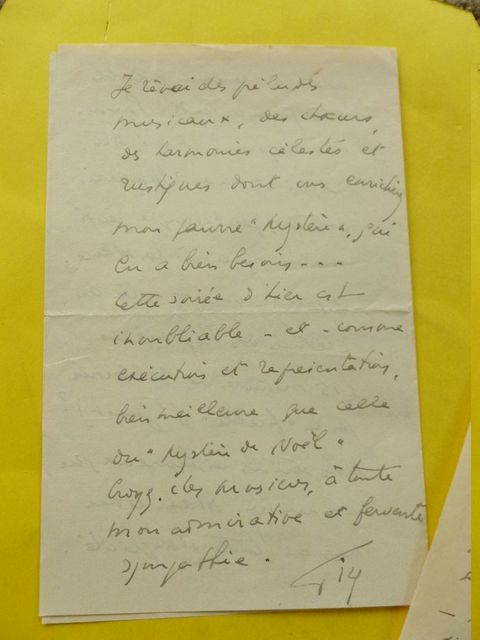 Je rêvai des préludes
musicaux, des chœurs,
des harmonies célestes et
rustiques dont vous enrichiriez
mon pauvre "Mystère", qui
en a bien besoin...
Cette soirée d'hier est
inoubliable - et - comme
exécution et représentation,
bien meilleure que celle
du "Mystère de Noël"
Croyez, cher à toute
mon admirative et fervente
sympathie.